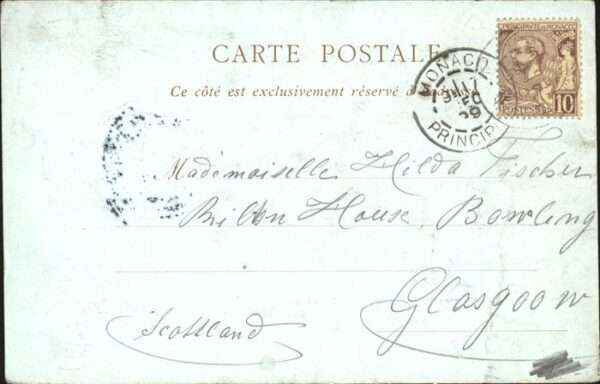 CARTE POSTALE
Ce côté est exclusivement réservé à
MONACO
PRINCIP
PRINCIPAUTÉ DE MONACO
POSTES
10
Mademoiselle Hilda Fischer
House, Bowling
Glasgoow
Scottland